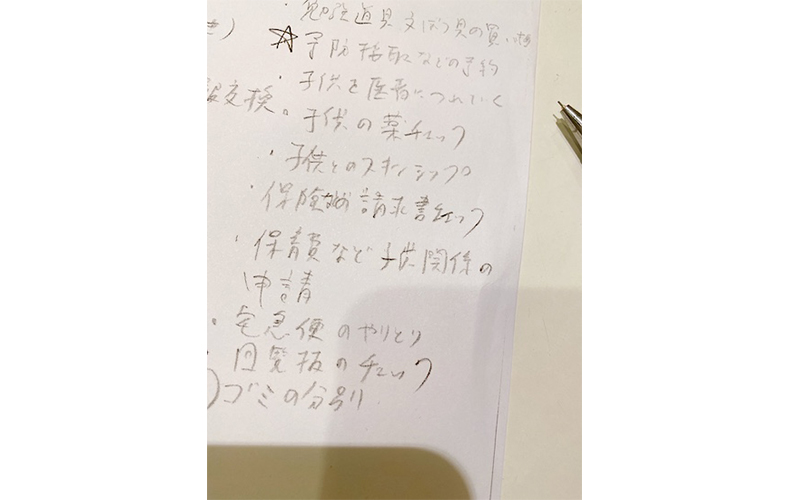 ・勉強道具、文ぼう具の買い
き)
☆予防接種などの予約
・子供を医者につれていく
交換。子供の薬チェック
・子供とのスキンシップ。
・保険などの請求書チェック
・保育費など子供関係の
申請
・宅急便のやりとり
・回覧板のチェック
)ゴミの分別